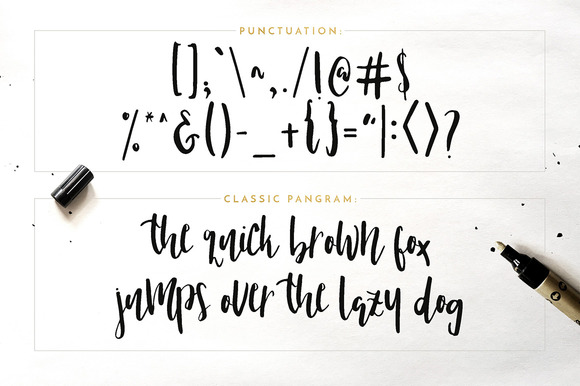 PUNCTUATION:
[];`\~,./!@#$
%*^&()-_+{}="|:<>?
CLASSIC PANGRAM:
the quick brown fox
jumps over the lazy dog